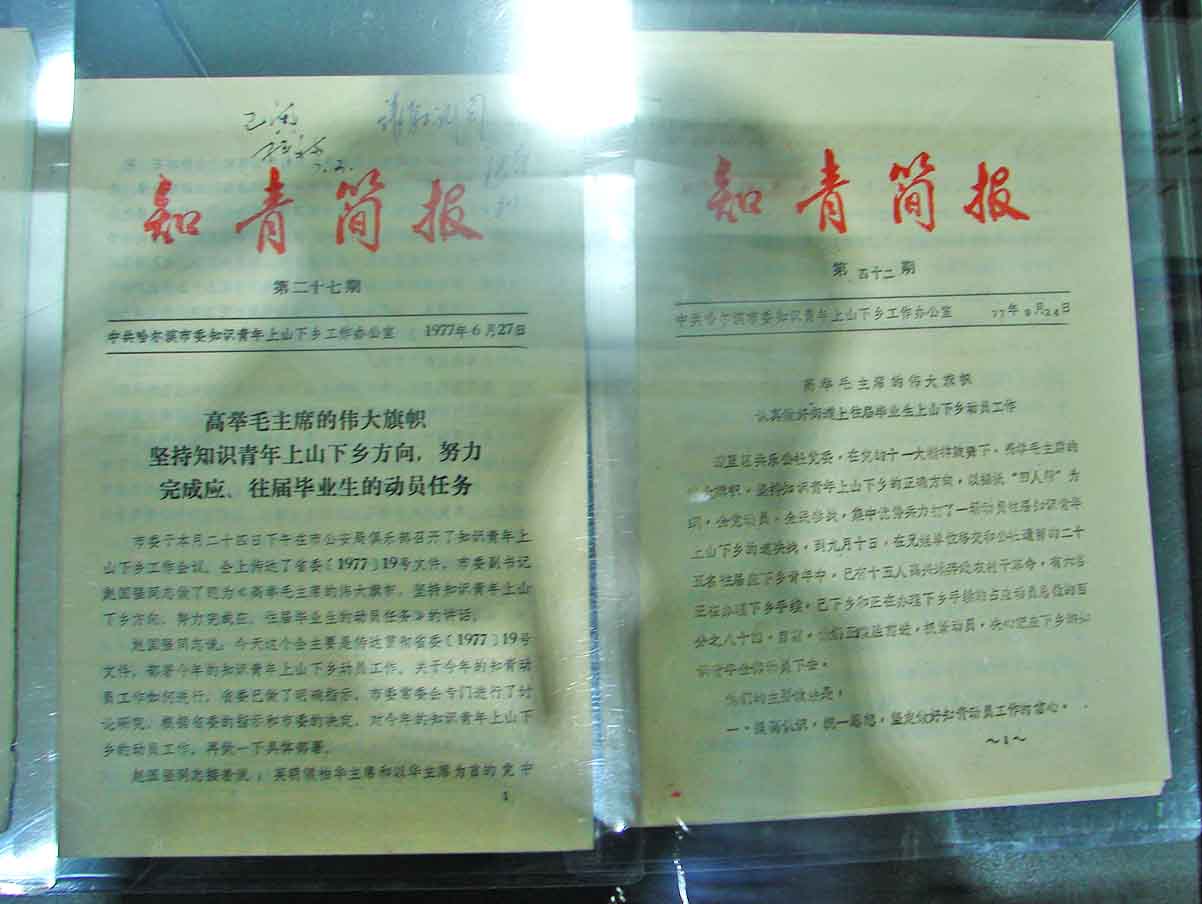 已阅
知青简报
第二十七期
中共哈尔滨市委知识青年上山下乡工作办公室 1977年6月27日
高举毛主席的伟大旗帜
坚持知识青年上山下乡方向，努力
完成应、往届毕业生的动员任务
市委于本月二十四日下午在市公安局俱乐部召开了知识青年上
山下乡工作会议。会上传达了省委〔1977〕19号文件。市委副书记
赵国强同志做了题为《高举毛主席的伟大旗帜，坚持知识青年上山
下乡方向，努力完成应、往届毕业生的动员任务》的讲话。
赵国强同志说：今天这个会主要是传达贯彻省委〔1977〕19号
文件，部署今年的知识青年上山下乡动员工作。关于今年的知青动
员工作如何进行，省委已做了明确指示，市委常委会专门进行了讨
论研究。根据省委的指示和市委的决定，对今年的知识青年上山下
乡的动员工作，再做一下具体部署。
赵国强同志接着说：英明领袖华主席和以华主席为首的党中
1
知青简报
第四十二期
中共哈尔滨市委知识青年上山下乡工作办公室 77年9月24日
高举毛主席的伟大旗帜
认真做好街道上往届毕业生上山下乡动员工作
共乐公社党委，在党的十一大精神鼓舞下，高举毛主席的
伟大旗帜，坚持知识青年上山下乡的正确方向，以揭批“四人帮”为
纲，全党动员，全民参战，集中优势兵力打了一场动员往届知识青年
上山下乡的速决战，到九月十日，在又继单位移交和公社遗留的二十
五名往届应下乡青年中，已有十五人高兴地奔赴农村干革命，有六名
正在办理下乡手续，已下乡和正在办理下乡手续的占应动员总数的百
分之八十四。目前，他们正乘胜前进，抓紧动员，决心把应下乡的知
识青年全部动员下去。
他们的主要做法是：
一、提高认识，统一思想，坚定做好知青动员工作的信心。
～1～